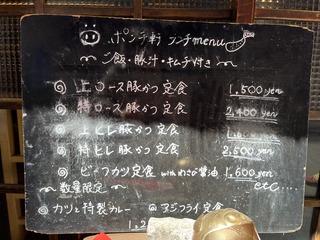 ポンチ軒 ランチmenu
ご飯・豚汁・キムチ付き
上ロース豚かつ定食 1,500yen
特ロース豚かつ定食 2,400yen
上ヒレ豚かつ定食 yen
特ヒレ豚かつ定食 2,500yen
ビーフカツ定食 withわさび醤油 1,600yen
数量限定 etc....
カツと特製カレー アジフライ定食
1,2